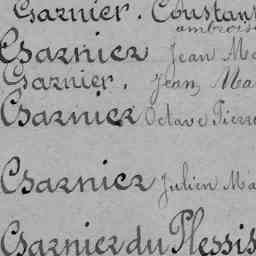 Garnier. Constan
ambrois
Garnier Jean Ma
Garnier, Jean Ma
Garnier Octave Pierre
Garnier Julien Ma
Garnier du Plessis